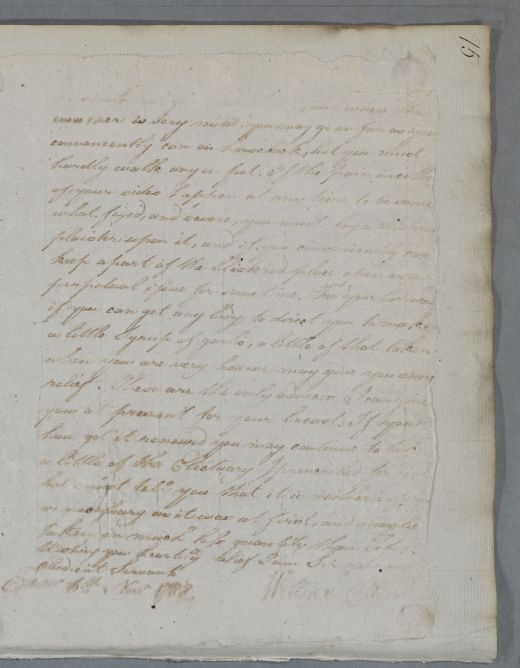 15
when the
weather is very mild, you may go as far as you
conveniently can on horseback, but you must
hardly walk any on foot. If the pain in either
of your sides happen at any time to be some
what fixed, and severe, you must lay a blistering
plaister upon it, and if you conveniently can
keep a part of the blistered place open as a
perpetual issue for some time. For your hoarseness
if you can get any body to direct you to make
a little Syrup of garlic, a little of that taken
when you are very hoarse may give you some
relief. These are the only advices I can give
you at present for your breast. If you
have got it renewed you may continue to take
a little of the Electuary I prescribed for
but must tell you that it is neither
so necessary as it was at first, and may be
taken in much less quantity than before.
Wishing you hearty relief I am Sir
Obedient Servant
6th Novr 1788 William Cullen